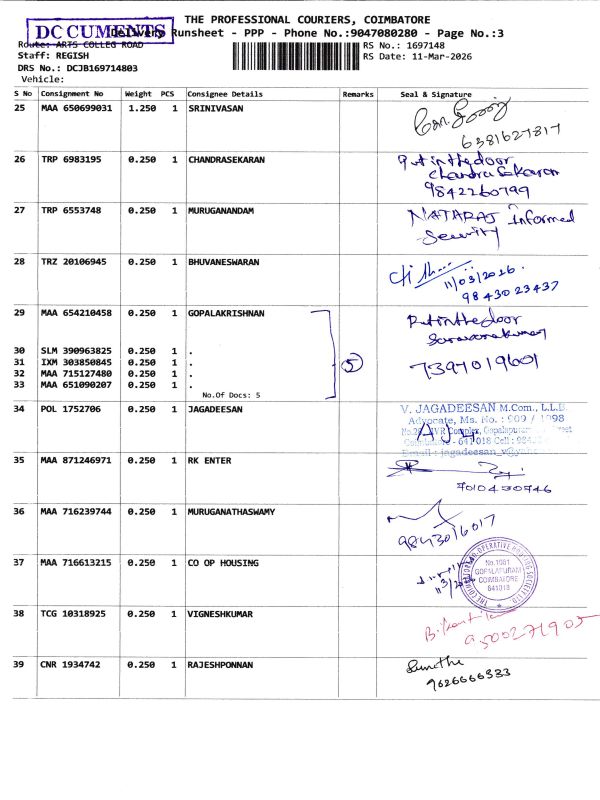 THE PROFESSIONAL COURIERS, COIMBATORE
DOCUMENTS
Delivery Runsheet - PPP - Phone No.:9047080280 - Page No.:3
Route: ARTS COLLEG ROAD
RS No.: 1697148
Staff: REGISH
RS Date: 11-Mar-2026
DRS No.: DCJB169714803
Vehicle:
S No Consignment No Weight PCS Consignee Details Remarks Seal & Signature
25 MAA 650699031 1.250 1 SRINIVASAN
6381627817
26 TRP 6983195 0.250 1 CHANDRASEKARAN
Put in the door
Chandra Sekaran
9842260799
27 TRP 6553748 0.250 1 MURUGANANDAM
NATARAJ informed
Security
28 TRZ 20106945 0.250 1 BHUVANESWARAN
11/03/2026.
9843023437
29 MAA 654210458 0.250 1 GOPALAKRISHNAN
Put in the door
Saravanakumar
30 SLM 390963825 0.250 1 .
31 IXM 303850845 0.250 1 .
5
7397019601
32 MAA 715127480 0.250 1 .
33 MAA 651090207 0.250 1 .
No.Of Docs: 5
34 POL 1752706 0.250 1 JAGADEESAN
V. JAGADEESAN M.Com., L.L.B.
Advocate, Ms. No. : 909 / 1998
Complex, Gopalapuram
641 018 Cell :
Email : jagadeesan
35 MAA 871246971 0.250 1 RK ENTER
7010430946
36 MAA 716239744 0.250 1 MURUGANATHASWAMY
9843016017
37 MAA 716613215 0.250 1 CO OP HOUSING
No.1061
GOPALAPURAM
COIMBATORE
641018
38 TCG 10318925 0.250 1 VIGNESHKUMAR
9500271905
39 CNR 1934742 0.250 1 RAJESHPONNAN
9626666333